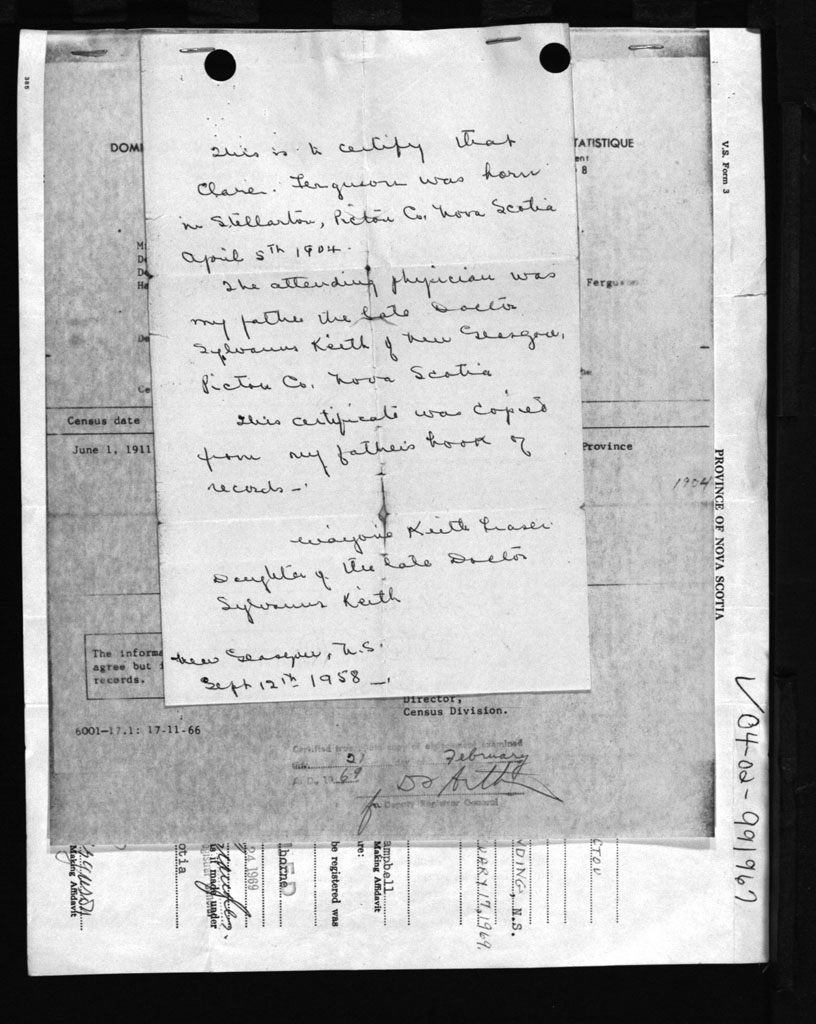 This is to certify that
Clare. Ferguson was born
in Stellarton, Pictou Co. Nova Scotia
April 5th 1904.
The attending physician was
my father the late Doctor
Sylvanus Keith of New Glasgow,
Pictou Co. Nova Scotia
This certificate was copied
from my father's book of
records -.
Marjorie Keith Fraser
Daughter of the late Doctor
Sylvanus Keith
New Glasgow, N.S.
Sept 12th 1958 -.
DOMI
TATISTIQUE
8
Census date
June 1, 1911
Province
1904
The informa
agree but i
records.
Director,
Census Division.
6001-17.1: 17-11-66
21
February
A. D. 1969
Deputy Registrar General
V.S. Form 3
PROVINCE OF NOVA SCOTIA
04-02-991967
CTOU
VDING, N.S.
UARY 17, 1969.
ampbell
Making Affidavit
re:
be registered was
lborne
24 1969
as if made under
otia
Making Affidavit